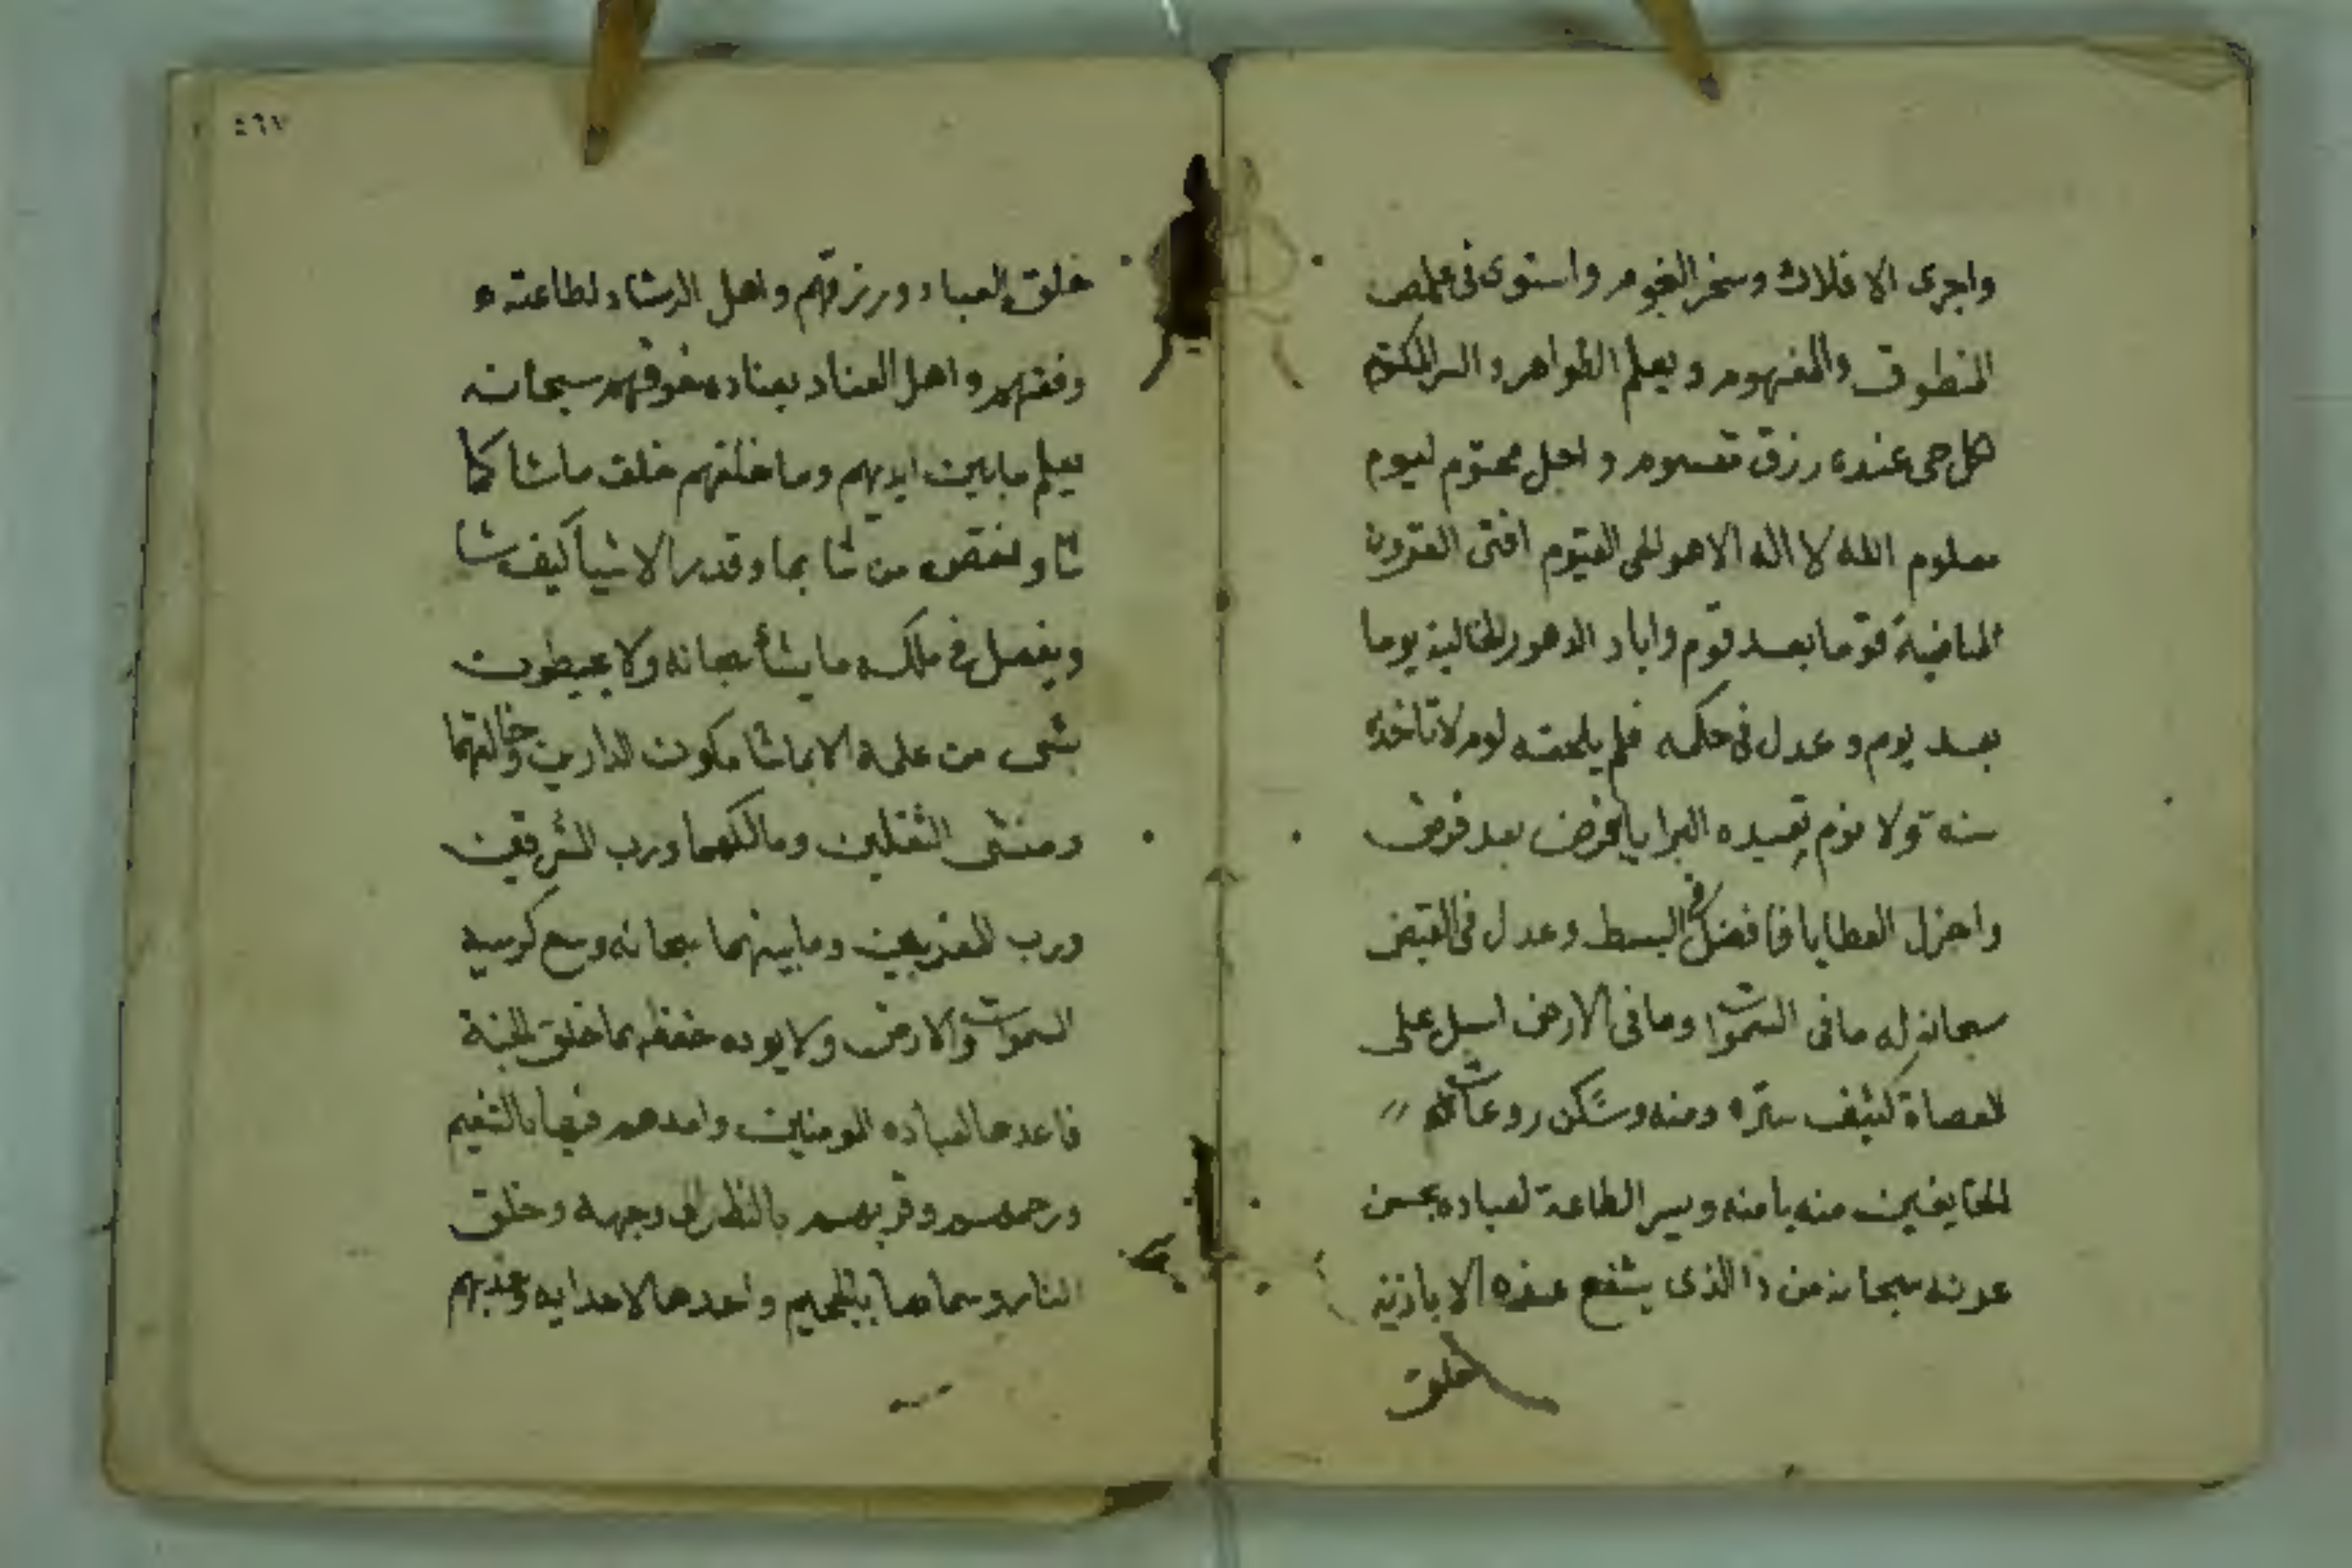 واجرى الافلاك وسخر النجوم واستوى فى علمه
المنطوق والمفهوم ويعلم الظواهر والسر المكتوم
كل حى عنده رزق مقسوم واجل محتوم ليوم
معلوم الله لا اله الا هو الحى القيوم افنى القرون
الماضية قوما بعد قوم واباد الدهور الخالية يوما
بعد يوم وعدل فى حكمه فلم يلحقه لوم لا تاخذه
سنة ولا نوم تعبده البرايا بالفرض بعد فرض
واجزل العطايا فافضل فى البسط وعدل فى القبض
سبحانه له ما فى السموات وما فى الارض اسبل على
العصاة كثيف ستره ومنه وسكن روعات
الخايفين منه بامنه ويسر الطاعة لعباده بحسن
عونه سبحانه من ذا الذى يشفع عنده الا باذنه
خلق
٤٦٧
خلق العباد ورزقهم واهل الرشاد لطاعته
وفقهم واهل العناد بعناده سبحانه
يعلم ما بين ايديهم وما خلفهم خلق ما شا كما
شا من شا بما وقدر الاشيا كيف شا
ويفعل فى ملكه ما يشا سبحانه ولا يحيطون
بشى من علمه الا بما شا مكون الدارين وخالقهما
ومنشى الثقلين ومالكهما ورب المشرقين
ورب المغربين وما بينهما سبحانه وسع كرسيه
السموات والارض ولا يوده حفظهما خلق الجنة
فاعدها لعباده المومنين وامدهم فيها بالنعيم
ورحمهم وقربهم بالنظر الى وجهه وخلق
النار وسماها بالجحيم واعدها لاعدايه وعذبهم